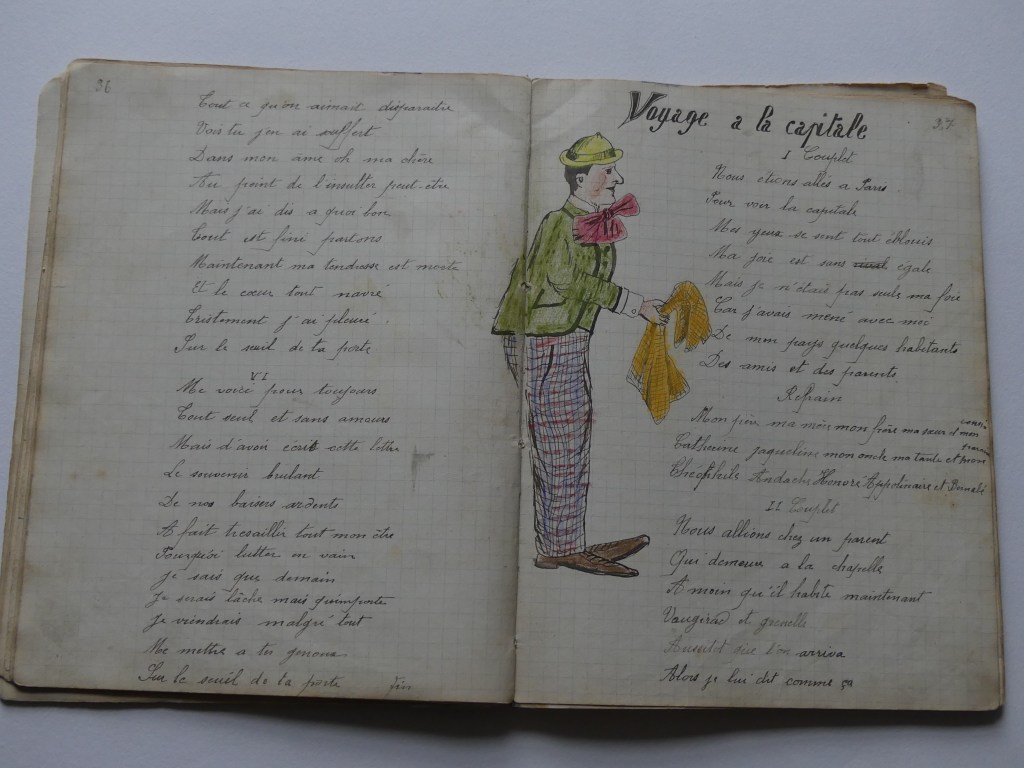 36
Tout ce qu'on aimait disparaître
Vois tu j'en ai souffert
Dans mon âme oh ma chère
Au point de l'insulter peut-être
Mais j'ai dis a quoi bon
Tout est fini partons
Maintenant ma tendresse est morte
Et le cœur tout navré
Tristement j'ai pleuré
Sur le seuil de ta porte
VI
Me voici pour toujours
Tout seul et sans amours
Mais d'avoir écrit cette lettre
Le souvenir brulant
De nos baisers ardents
A fait tresaillir tout mon être
Pourquoi lutter en vain
je sais que demain
Je serais lâche mais qu'importe
je viendrais malgré tout
Me mettre a tes genoux
Sur le seuil de ta porte fin
Voyage a la capitale
37
I Couplet
Nous étions allés a Paris
Pour voir la capitale
Mes yeux se sont tout éblouis
Ma joie est sans égale
Mais je n'étais pas seule ma foie
Car j'avais mené avec moi
De mon pays quelques habitants
Des amis et des parents.
Refrain
Mon père ma mère mon frère ma sœur et mon
Catherine jaqueline mon oncle ma tante et
Théophile Honoré Appolinaire et
II Couplet
Nous allions chez un parent
Qui demeure a la chapelle
A moin qu'il habite maintenant
Vaugirad et grenelle
Aussitot que l'on arriva
Alors je lui dit comme ça